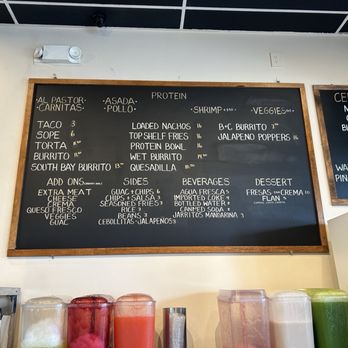 PROTEIN
AL PASTOR
CARNITAS
ASADA
POLLO
SHRIMP
VEGGIES
TACO 3
SOPE 6
TORTA
BURRITO
SOUTH BAY BURRITO
LOADED NACHOS 16
TOP SHELF FRIES 16
PROTEIN BOWL 16
WET BURRITO
QUESADILLA
B+C BURRITO
JALAPENO POPPERS 16
ADD ONS
EXTRA MEAT
CHEESE
CREMA
QUESO FRESCO
VEGGIES
GUAC
SIDES
GUAC & CHIPS 6
CHIPS & SALSA 3
SEASONED FRIES
RICE
BEANS
CEBOLLITAS + JALAPEÑOS
BEVERAGES
AGUA FRESCA 5
IMPORTED COKE
BOTTLED WATER
CANNED SODA
JARRITOS MANDARINA
DESSERT
FRESAS CON CREMA
FLAN